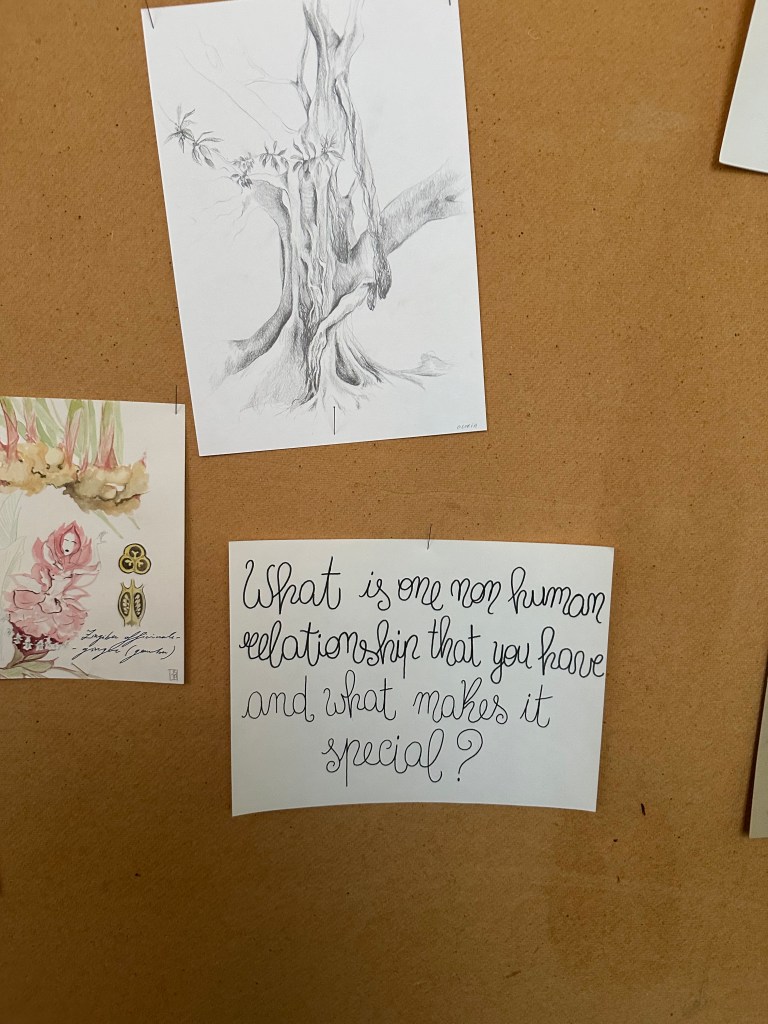 What is one non human
relationship that you have
and what makes it
special?
Zingiber officinale -